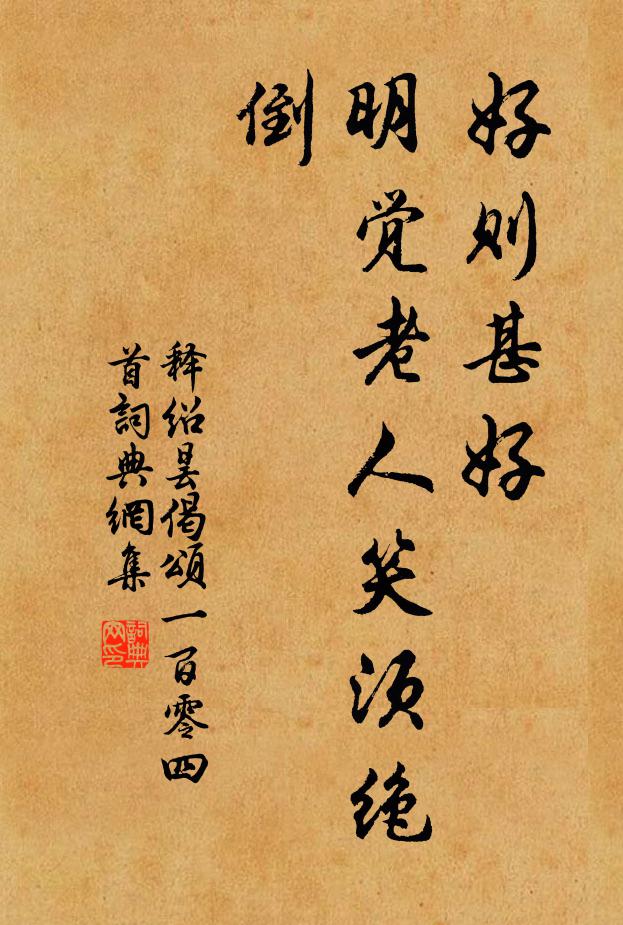 好则甚好
明觉老人笑须绝
倒
释绍昙偈頌一百零四
首詞典網集
詞典
网印